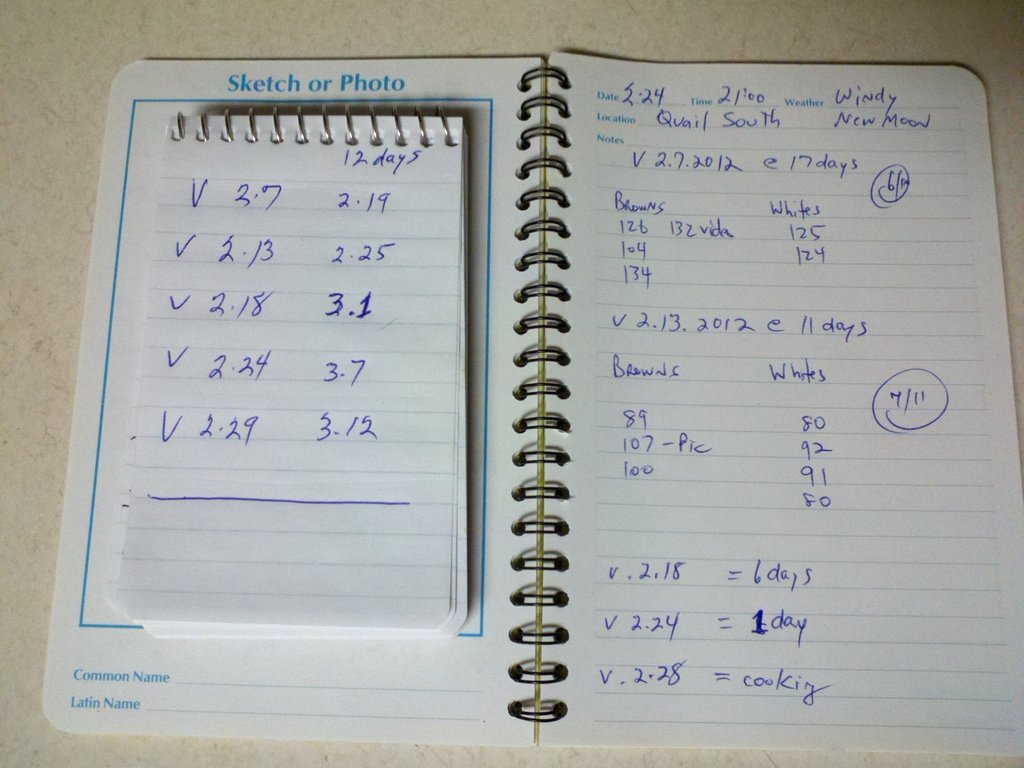 Sketch or Photo
12 days
V 2.7 2.19
V 2.13 2.25
V 2.18 3.1
V 2.24 3.7
V 2.29 3.12
Common Name
Latin Name
Date 2.24 Time 21:00 Weather Windy
Location Quail South New Moon
Notes
V 2.7.2012 @ 17 days
Browns Whites
126 132 125
104 124
134
V 2.13.2012 @ 11 days
Browns Whites
7/11
89 80
107 - Pic 92
100 91
80
V. 2.18 = 6 days
V 2.24 = 1 day
V. 2.28 = cooking